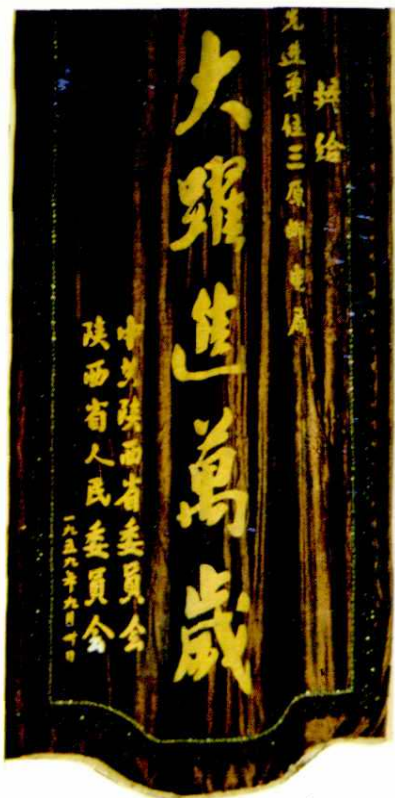 奖给
先进单位三原邮电局
大躍進萬歲
中共陕西省委員会
陕西省人民委員会
一九五九年九月卅日